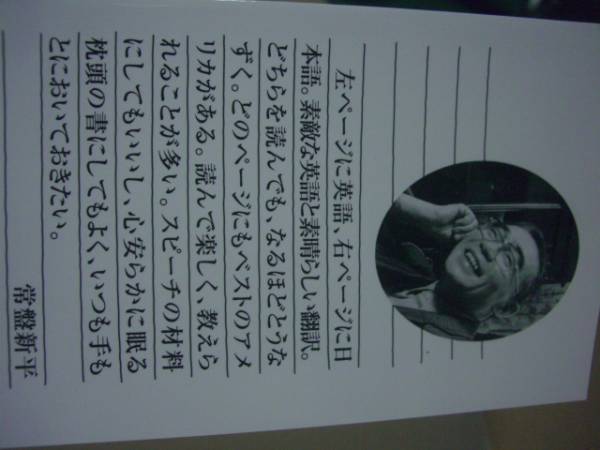 左ページに英語、右ページに日
本語。素敵な英語と素晴らしい翻訳。
どちらを読んでも、なるほどとうな
ずく。どのページにもベストのアメ
リカがある。読んで楽しく、教えら
れることが多い。スピーチの材料
にしてもいいし、心安らかに眠る
枕頭の書にしてもよく、いつも手も
とにおいておきたい。
常盤新平